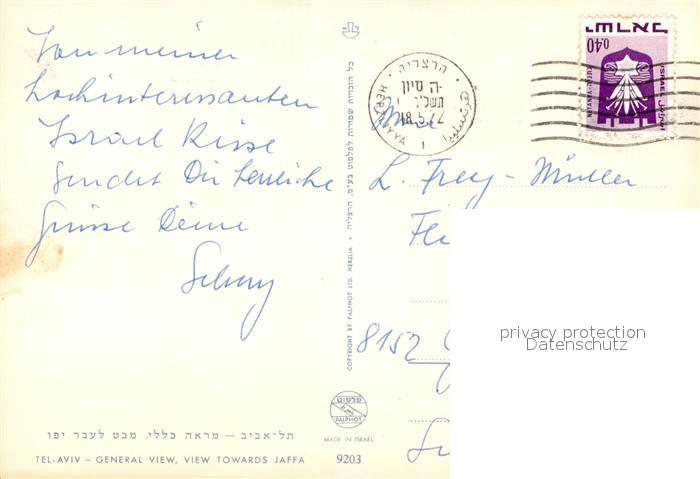 Von meiner
hochinteressanten
Israel Reise
sendet Dir herzliche
Grüsse Deine
כל הזכויות שמורות לפלפוט בע"מ, הרצליה • COPYRIGHT BY PALPHOT LTD. HERZLIA
הרצליה
ה' סיון
תשל"ב
18.5.72
HERZLIYYA
1
ישראל
0.40
ISRAEL
NETANYA
L. Frey-Müller
8152
privacy protection
Datenschutz
פלפוט
PALPHOT
MADE IN ISRAEL
9203
תל-אביב – מראה כללי, מבט לעבר יפו
TEL-AVIV – GENERAL VIEW, VIEW TOWARDS JAFFA